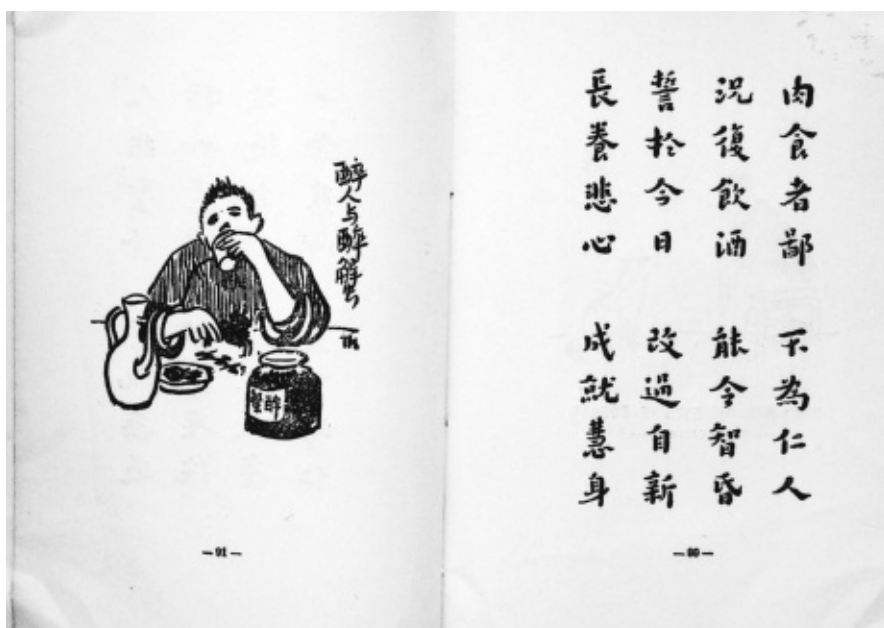 肉食者鄙 不為仁人
況復飲酒 能令智昏
誓於今日 改過自新
長養悲心 成就慧身
—90—
醉人与醉蟹
TK
醉蟹
—91—